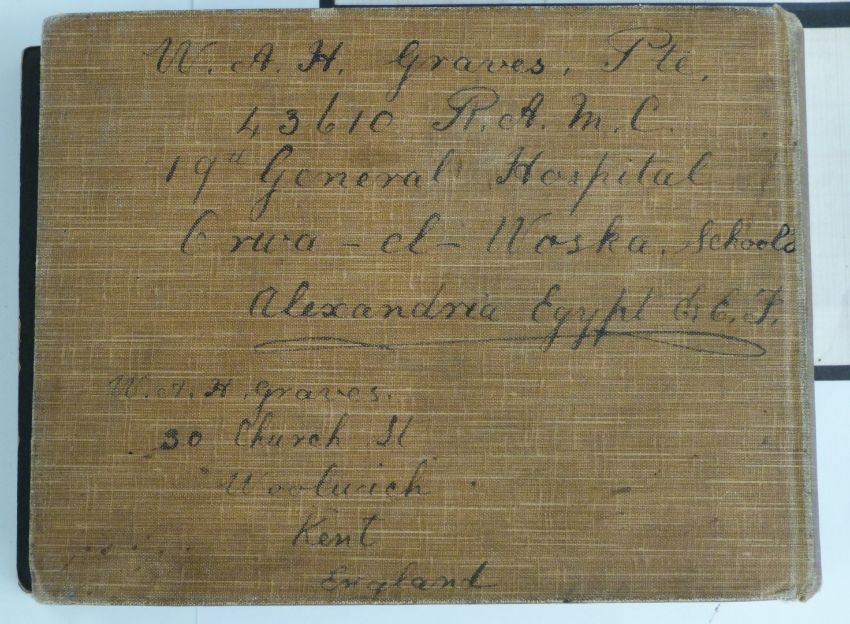 W. A. H. Graves. Pte.
43610 R. A. M. C.
19th General Hospital
Orwa - el - Woska. Schools
Alexandria Egypt E. E. F.
W. A. H. Graves.
30 Church St
Woolwich
Kent
England